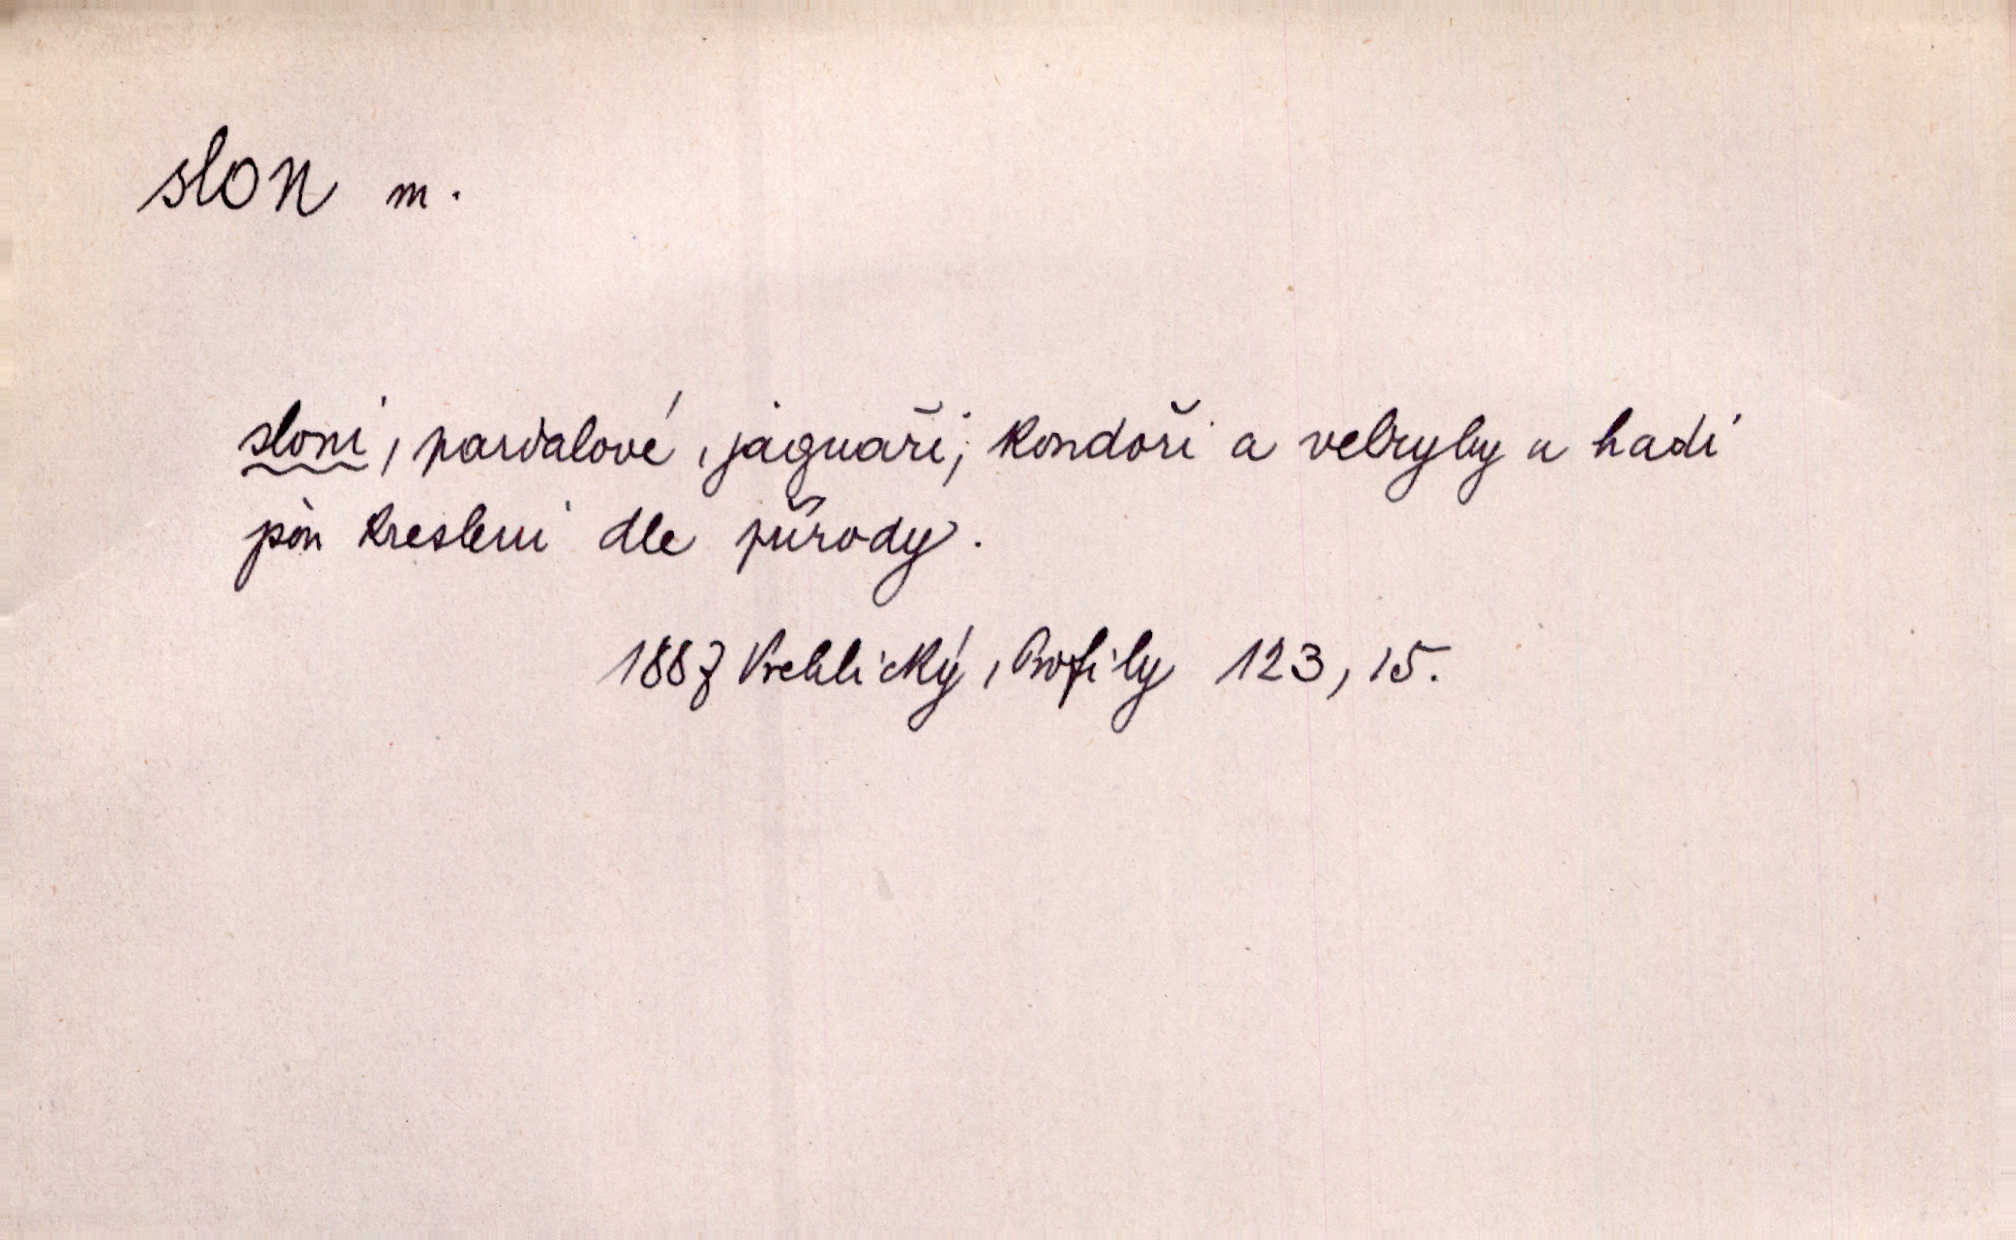 slon m.
sloni, pardalové, jaguaři, kondoři a velryby a hadi
jsou kresleni dle přírody.
1887 Vrchlický, Profily 123, 15.